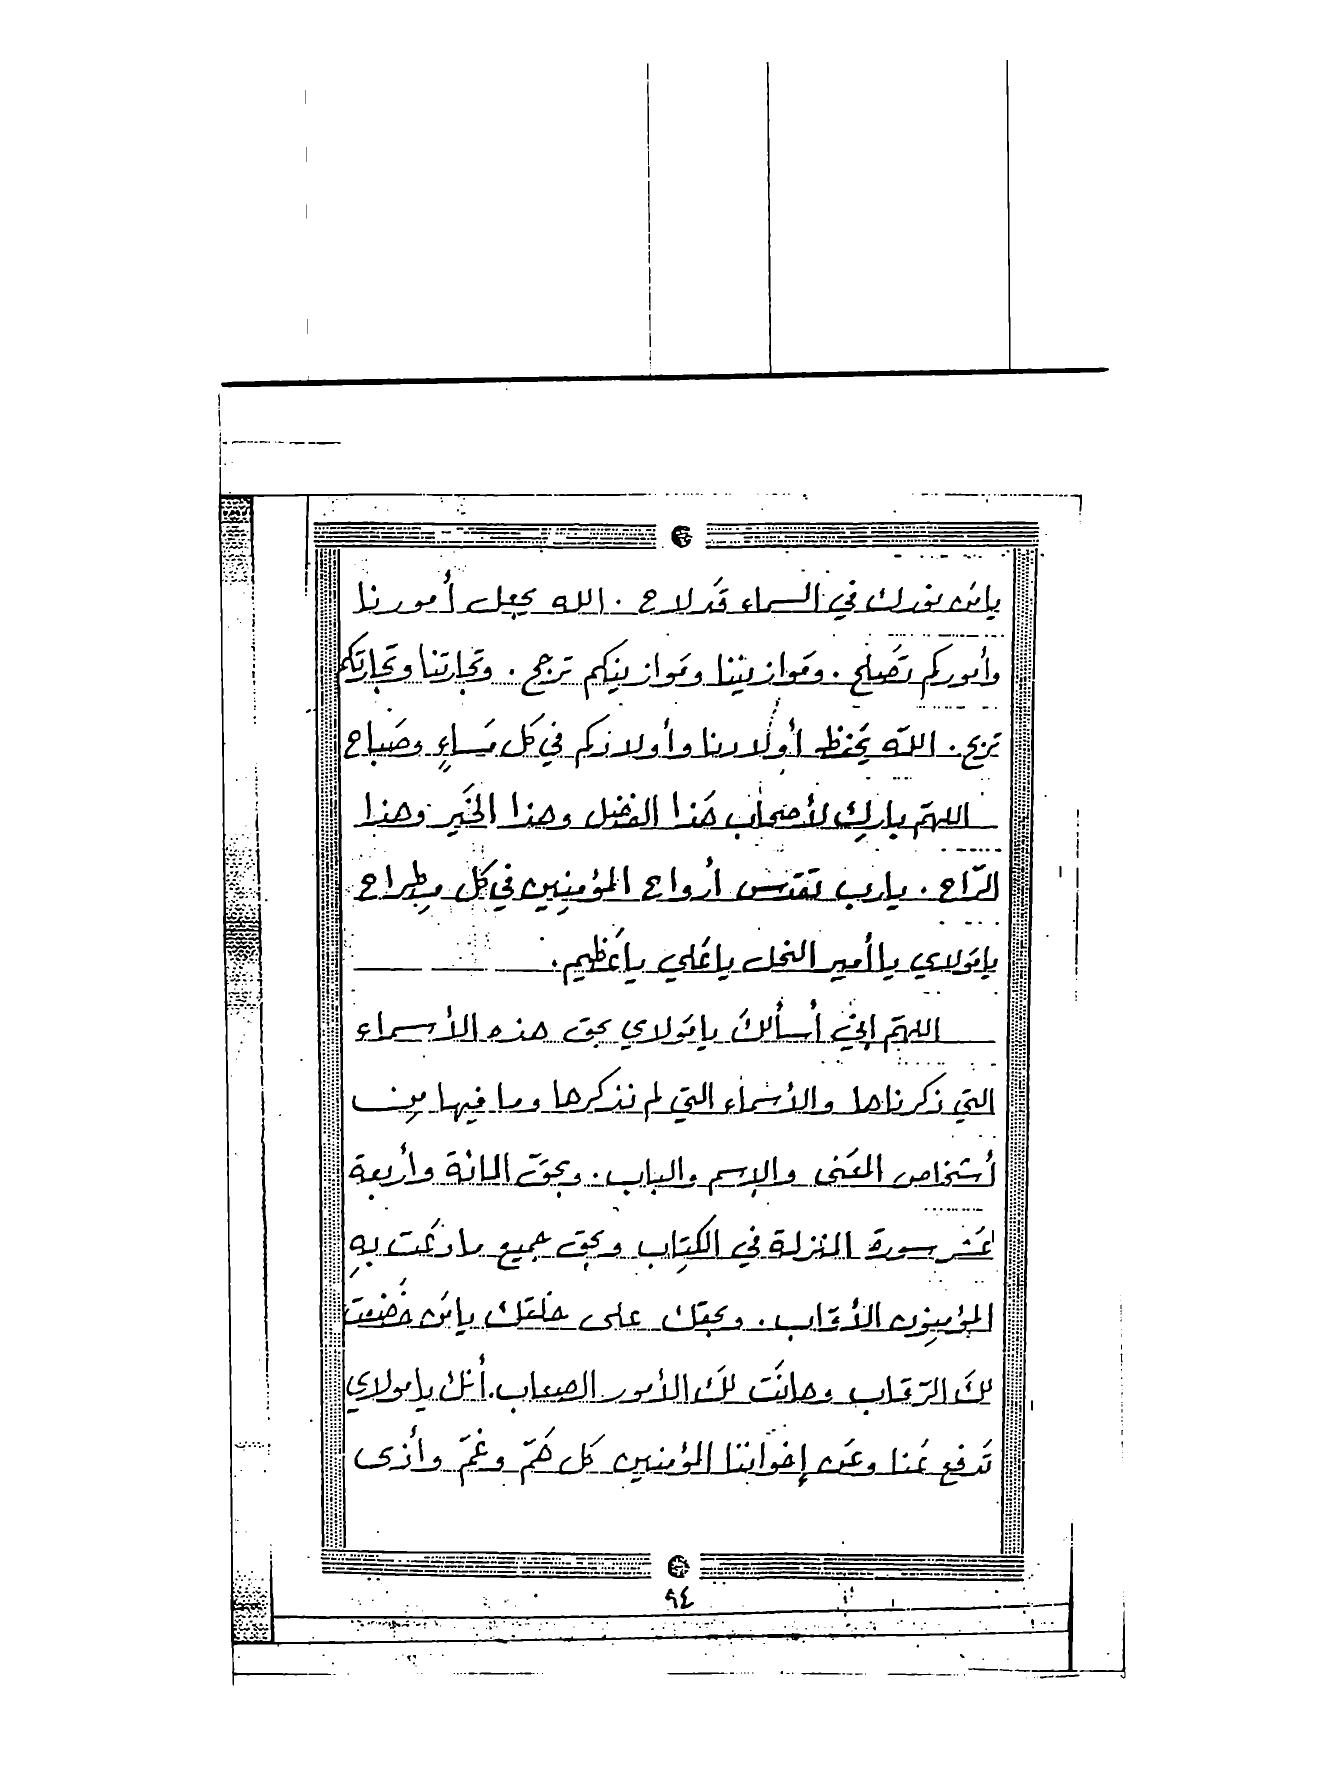 يا مَن نورك في السماء قَد لاح . الله يجعل أمورنا
وأموركم تَصَلح . ومَوازيننا ومَوازينكم ترجح . وتَجارتنا وتَجارتكم
تربح . اللّه يَحفظ أولادنا وأولادكم في كَل مَساءٍ وصَباح
اللهمّ بارك لأصحاب هَذا الفضل وهذا الخَير وهذا
الرّاح . يارب تقدس أرواح المؤمنِين في كل مِطراح
يامَولاي ياأمير النحل ياعَلي ياعَظيم .
اللهمّ إني أسألكَ يامَولاي بحق هذه الأسماء
التي ذكرناها والأسْماء التي لم نذكرها وما فيها مِن
أشخاص المعَنى والإسم والباب . وبحَقّ المائة وأربعة
عَشر سورة المنزلة في الكِتاب وبحق جميع مادعَت بهِ
المؤمِنون الأوّاب . وبحقك على خلقك يامَن خَضعت
لكَ الرّقاب وهانَت لكَ الأمور الصعاب . أنك يامولاي
تَدفع عَنا وعَن إخواننا المؤمنين كل هَمّ وغَمّ وأذى
٩٤